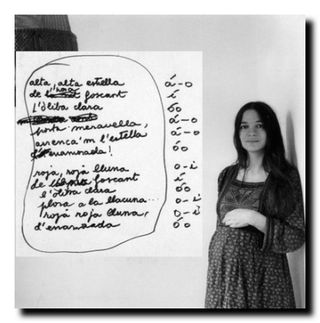 alta, alta estrella
de l'úvol foscant
l'òliba clara
porta meravella,
avenca'm l'estella
enamorada!
roja, roja lluna
de foscant
l'òliba clara
plora a la llacuna...
roja roja lluna,
d'enamorada
á-o
í
óo
á-o
á-o
óo
o-i
í
óo
o-i
o-i
óo